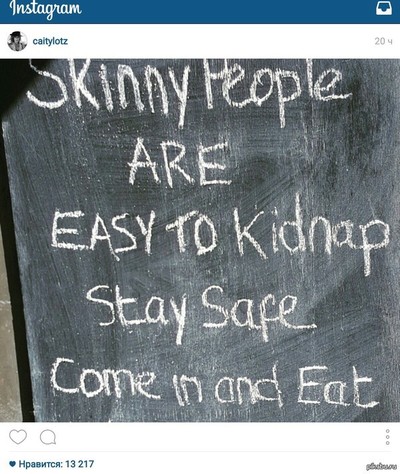 Instagram
caitylotz
20 ч
Skinny People
ARE
EASY TO Kidnap
Stay Safe
Come in and Eat
Нравится: 13 217
pikabu.ru